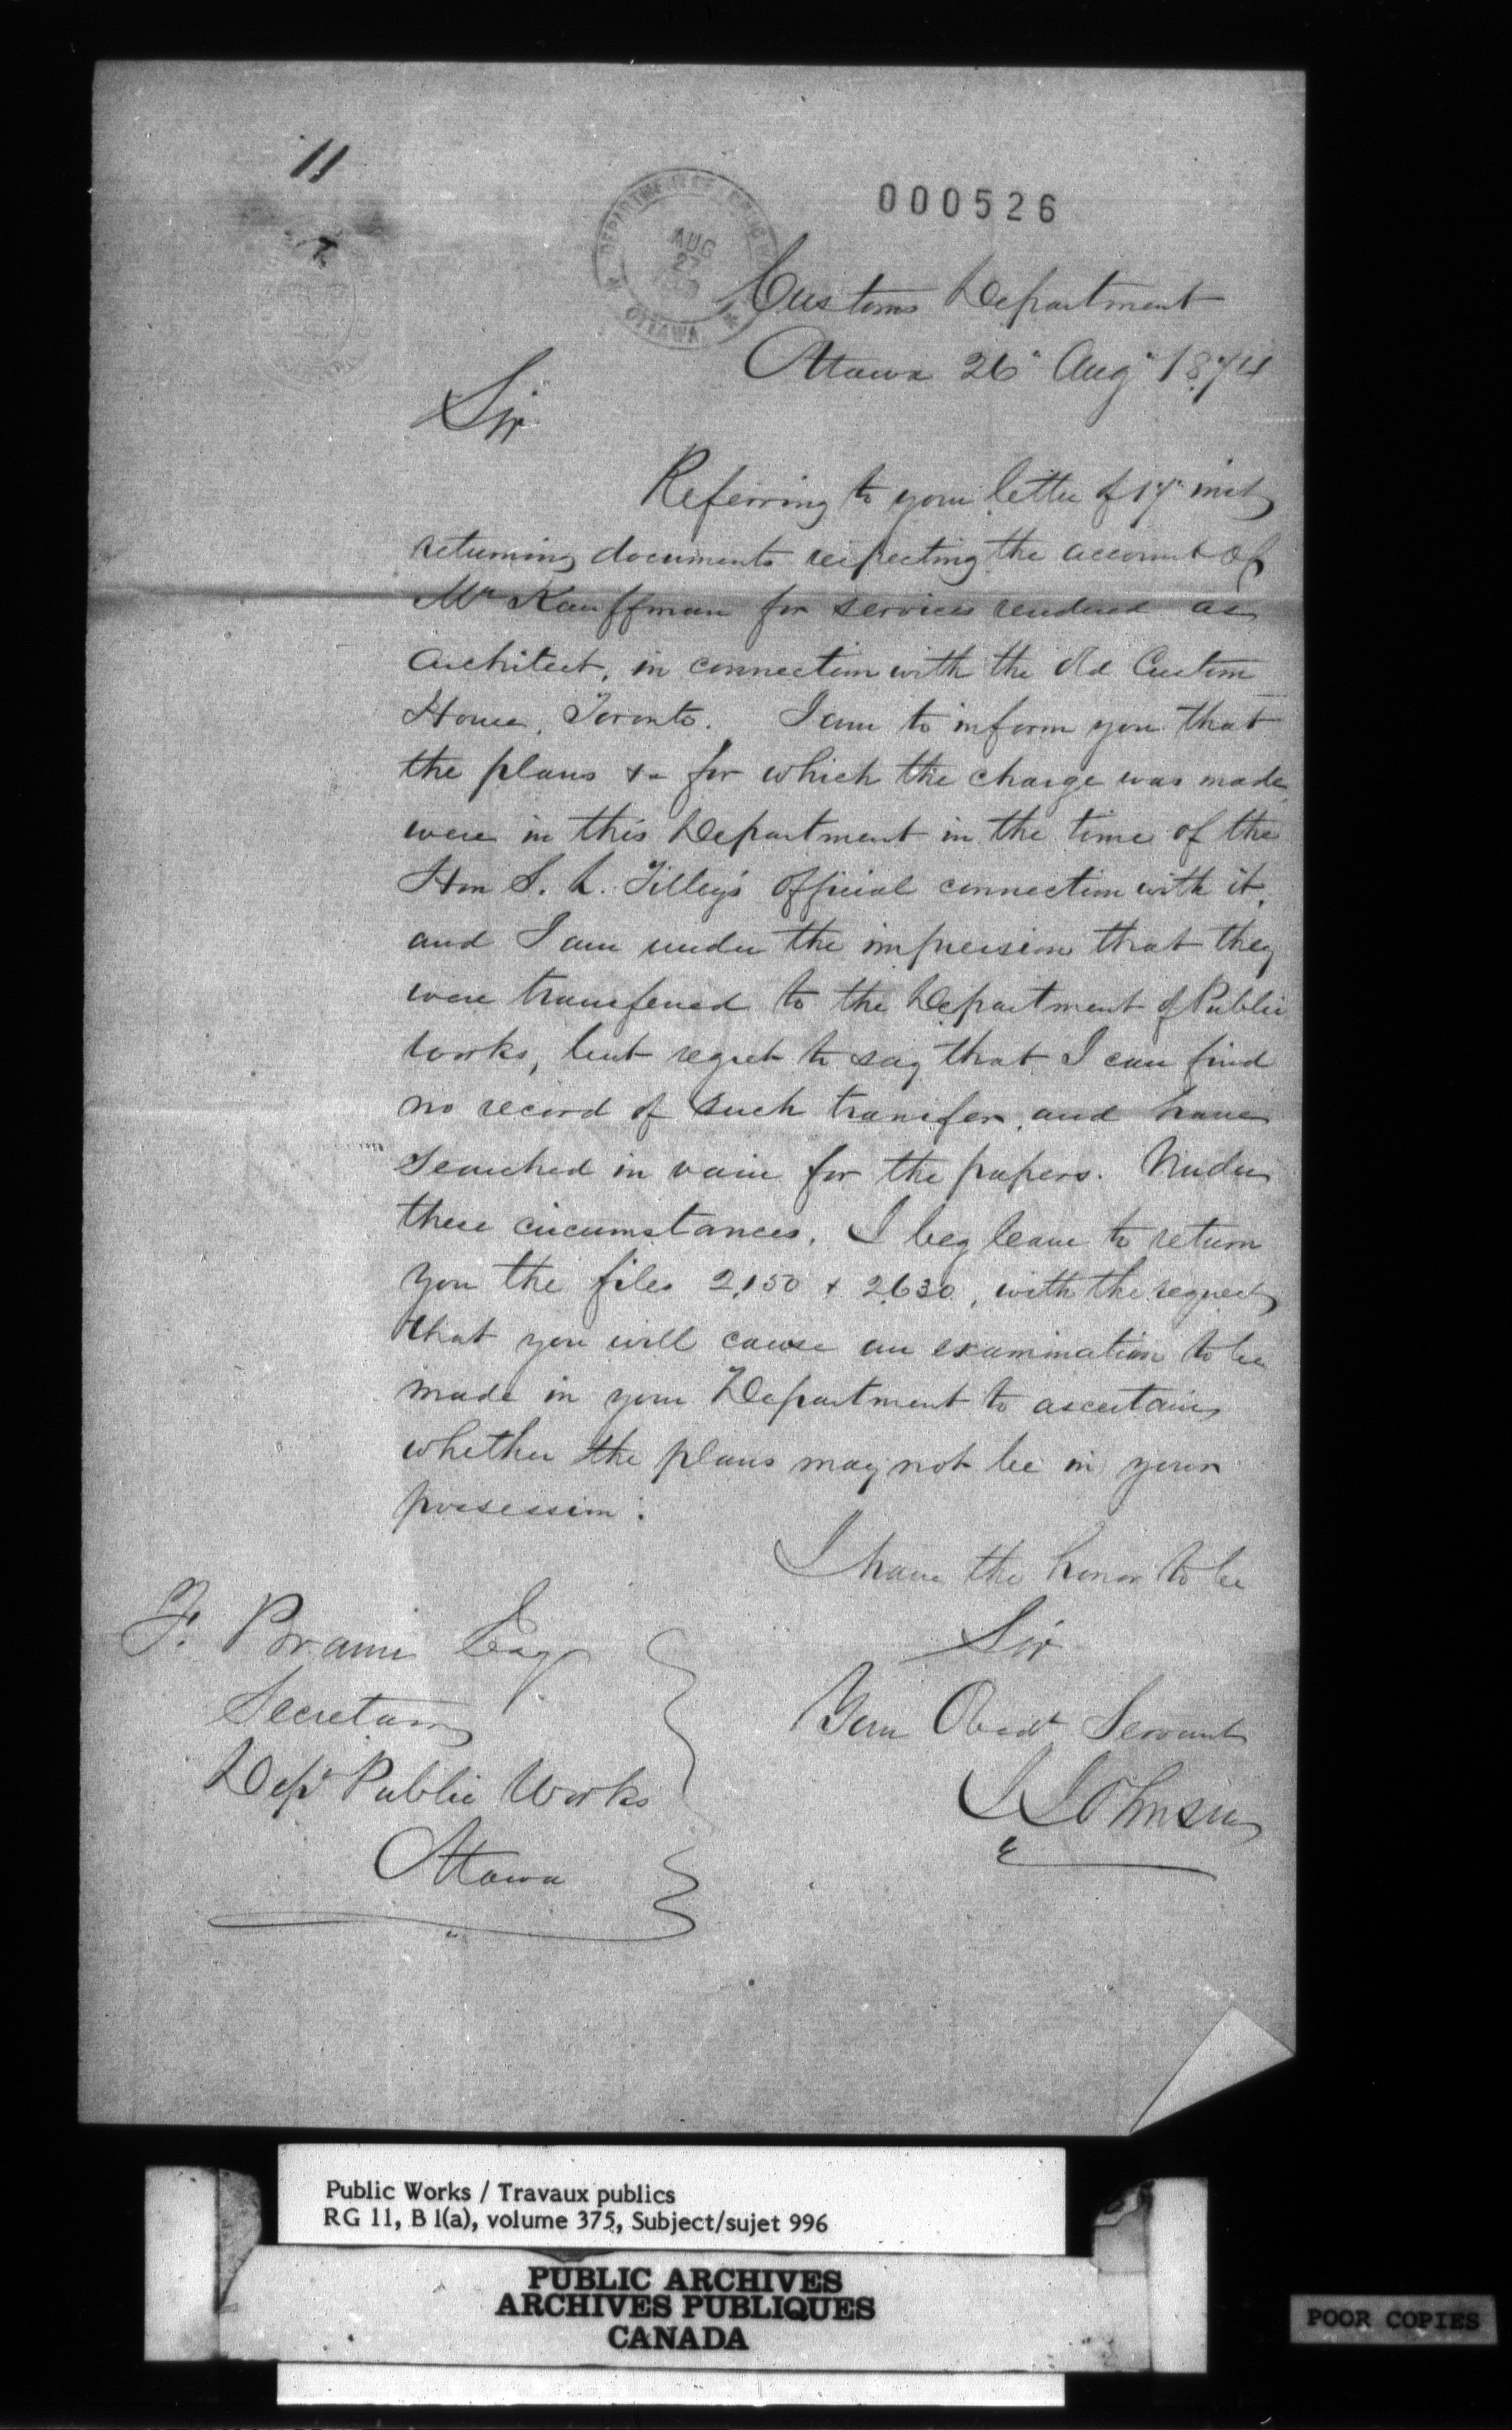 11
000526
DEPARTMENT OF PUBLIC
AUG
27
OTTAWA
Customs Department
Ottawa 26" Aug" 1874
Sir
Referring to your letter of 17" inst
returning documents respecting the account of
Mr Kauffman for services rendered as
Architect, in connection with the Old Custom
House, Toronto. I am to inform you that
the plans &c for which the charge was made,
were in this Department in the time of the
Hon S. L. Tilley's Official connection with it,
and I am under the impression that they
were transferred to the Department of Public
Works, but regret to say that I can find
no record of such transfer, and have
searched in vain for the papers. Under
these circumstances, I beg leave to return
you the files 2,150 & 2,630, with the request
that you will cause an examination to be
made in your Department to ascertain
whether the plans may not be in your
possession.
I have the honor to be
Sir
Your Obedt Servant
J Johnson
F. Braun Esq
Secretary
Dept Public Works
Ottawa
Public Works / Travaux publics
RG 11, B 1(a), volume 375, Subject/sujet 996
PUBLIC ARCHIVES
ARCHIVES PUBLIQUES
CANADA
POOR COPIES